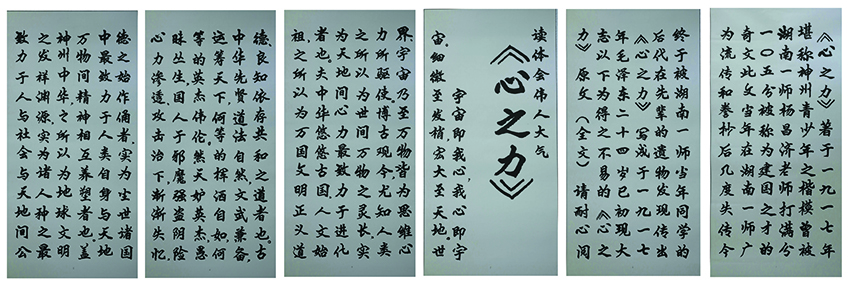 《心之力》著于一九一七年
堪称神州青少年之楷模曾被
湖南一师杨昌济老师打满分
一〇五分被称为建国之才的
奇文此文当年在湖南一师广
为流传和誊抄后几度失传今
终于被湖南一师当年同学的
后代在先辈的遗物发现传出
《心之力》写成于一九一七
年毛泽东二十四岁已初现大
志以下为得之不易的《心之
力》原文(全文)请耐心阅
读体会伟人大气
《心之力》
宇宙即我心,我心即宇
宙。细微至发梢,宏大至天地。世
界、宇宙乃至万物皆为思维心
力所驱使。博古观今,尤知人类
之所以为世间万物之灵长,实
为天地间心力最致力于进化
者也。夫中华悠悠古国,人文始
祖之所以为万国文明正义道
德、良知依存共和之道者也。古
中华先贤道法自然,文武兼备,
运筹天下,何等的挥洒自如,何
等的英杰伟伦。然天妒英杰,愚
昧丛生,国人于邪魔强盗阴险
心力渗透、攻击治下,渐渐失忆。
德之始作俑者,实为尘世诸国
中最致力于人类自身与天地
万物间精神相互养塑者也。盖
神州中华之所以为地球文明
之发祥渊源,实为诸人种之最
致力于人与社会与天地间公